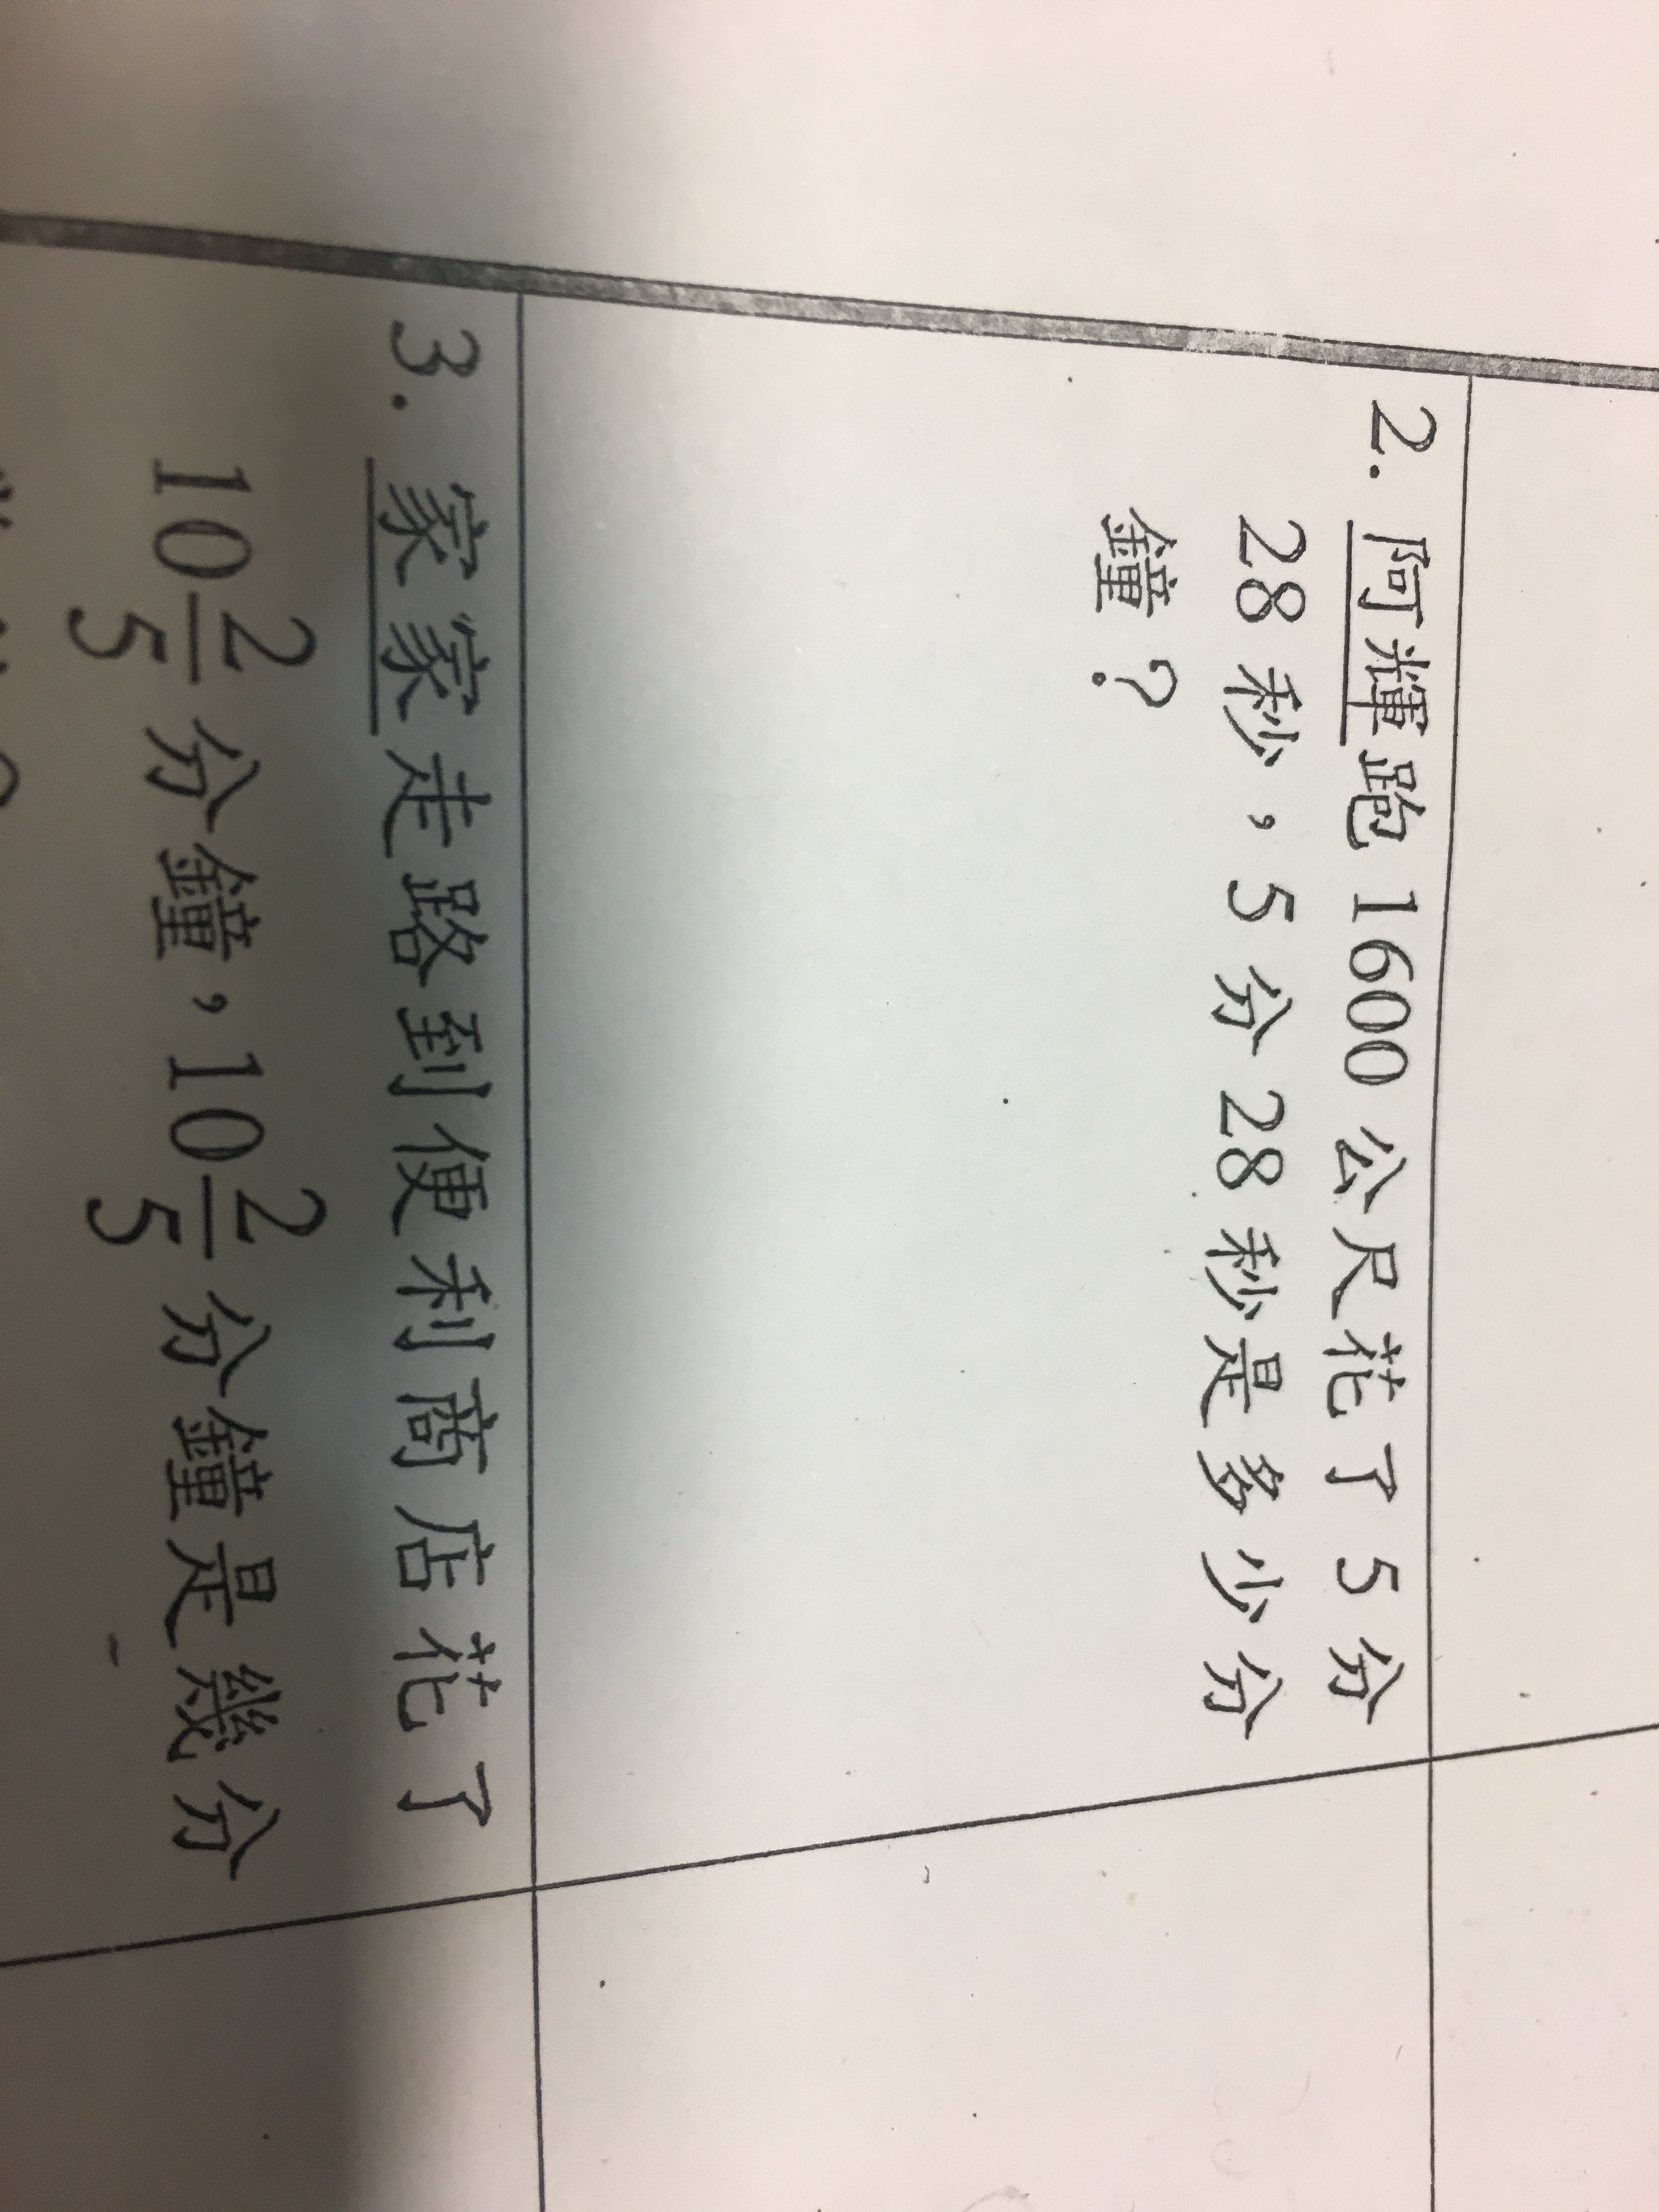 2. 阿輝跑 1600 公尺花了 5 分
28 秒，5 分 28 秒是多少分
鐘？
3. 家家走路到便利商店花了
10 2/5 分鐘，10 2/5 分鐘是幾分